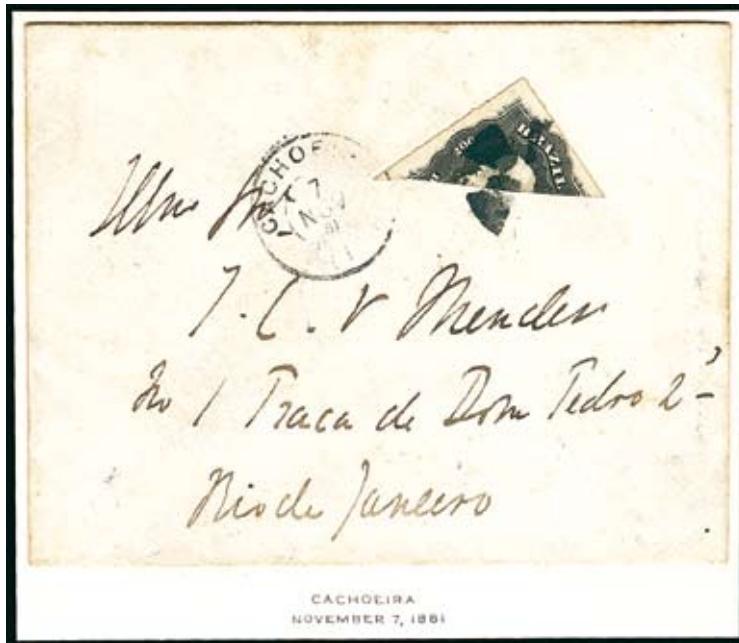 CACHOE
7
NOV
BRAZIL
Illmo Snr
T. C. V Mendes
No 1 Praca de Dom Pedro 2º
Rio de Janeiro
CACHOEIRA
NOVEMBER 7, 1881